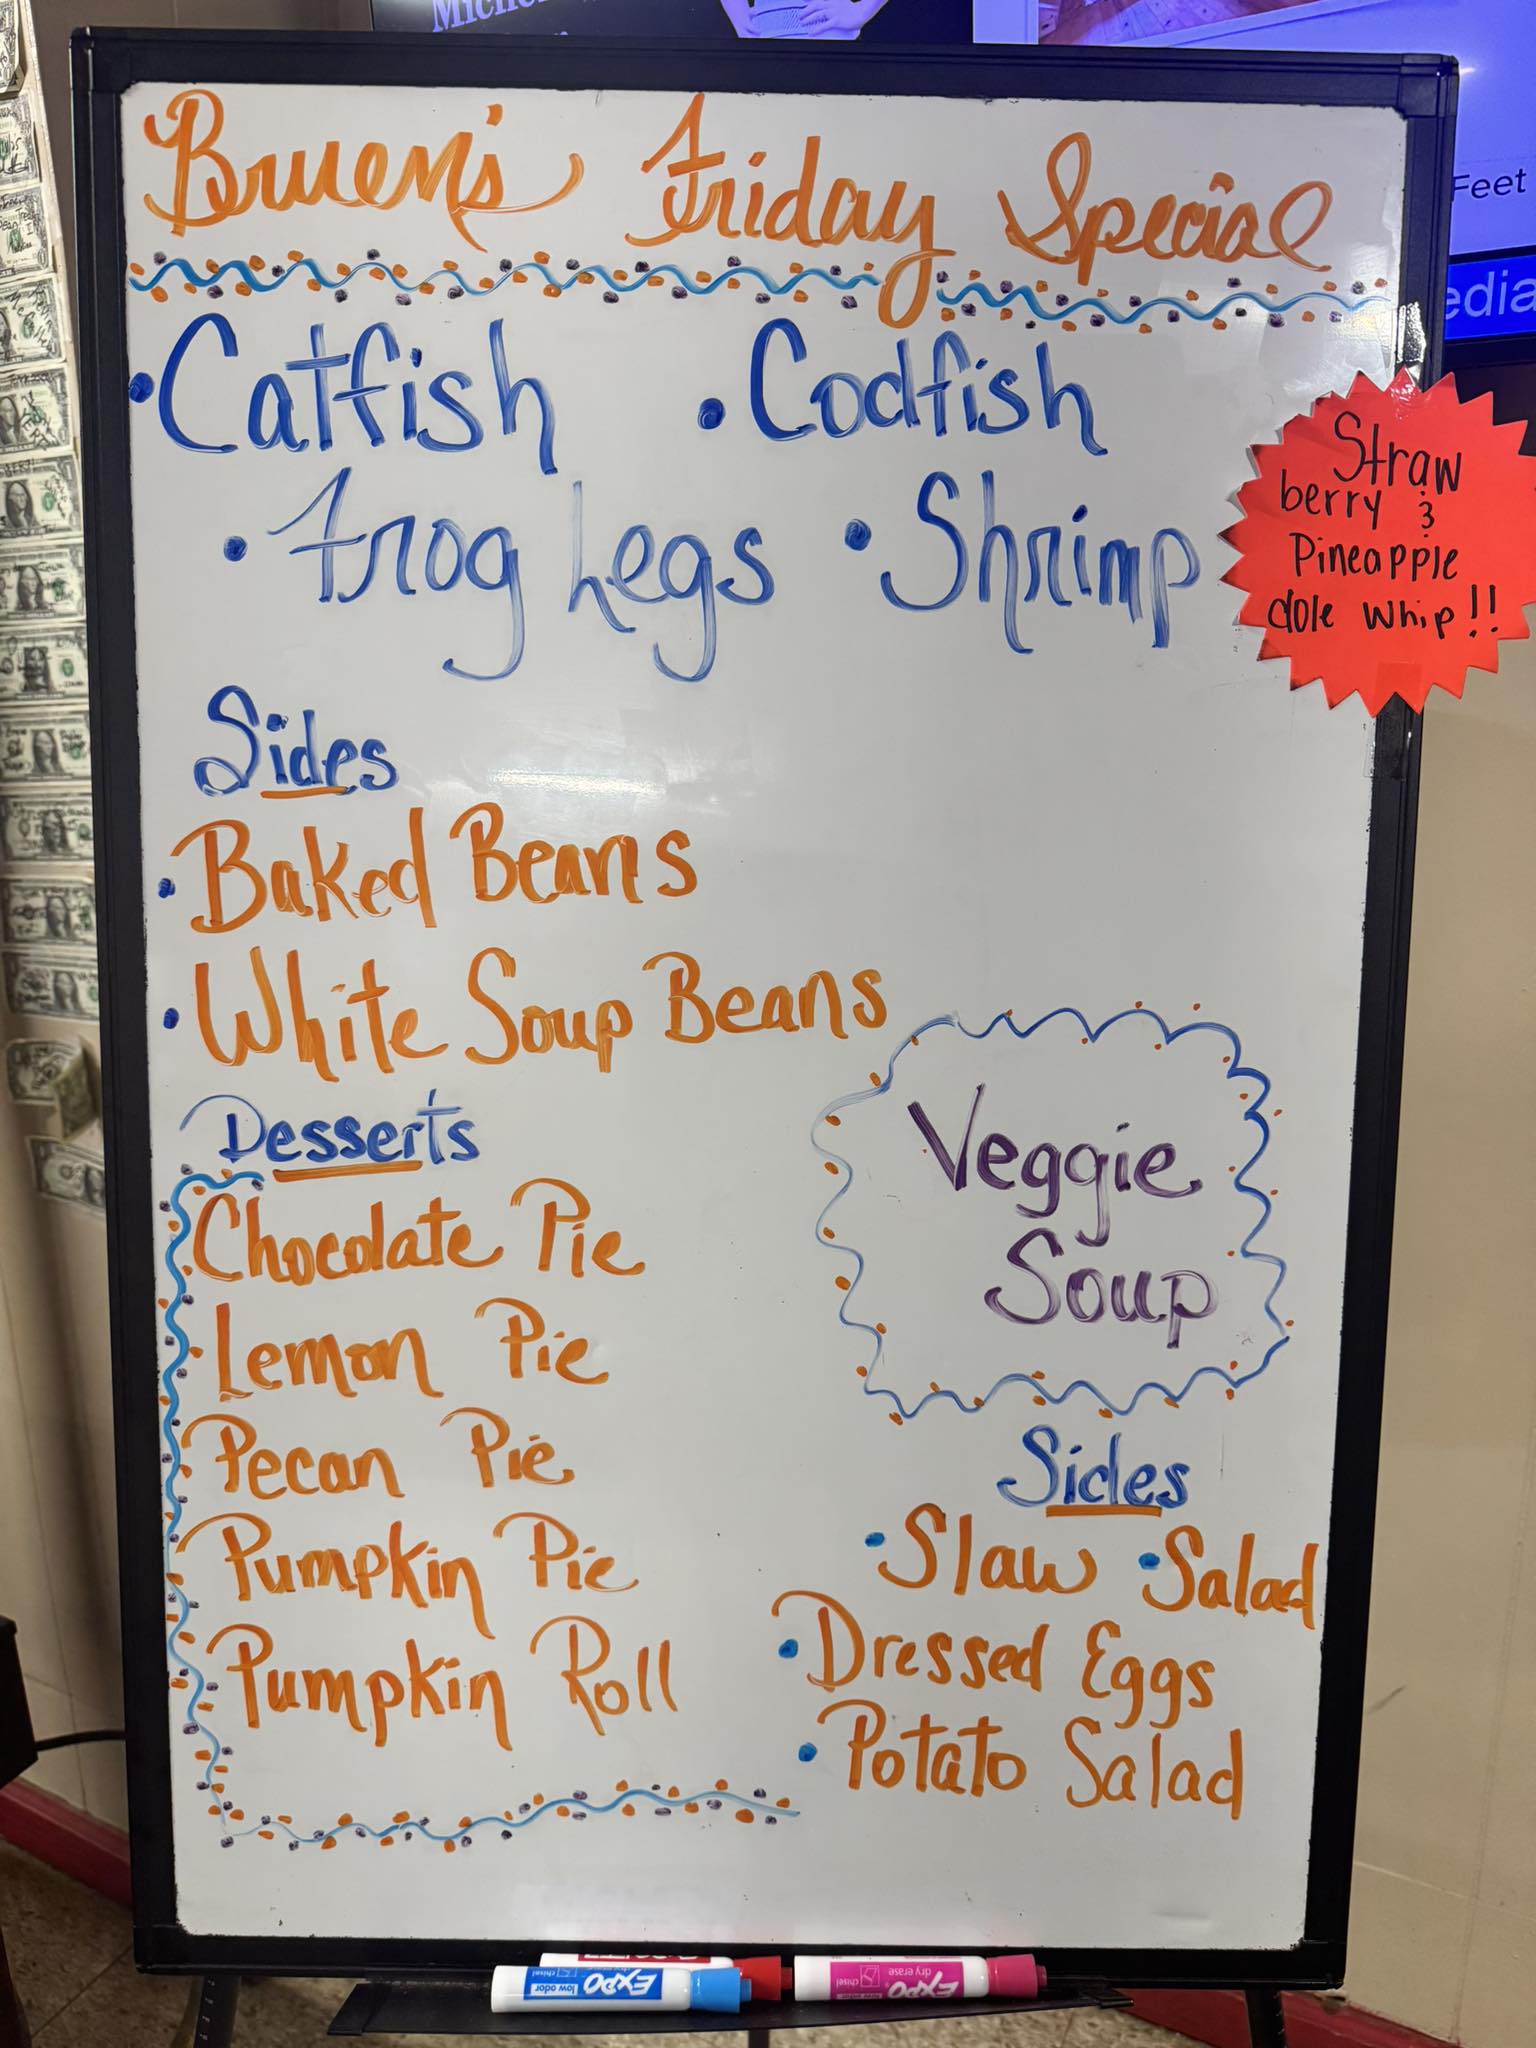 Bruen's Friday Special
• Catfish • Codfish
• Frog Legs • Shrimp
Straw
berry &
Pineapple
dole whip!!
Sides
• Baked Beans
• White Soup Beans
Desserts
Chocolate Pie
Lemon Pie
Pecan Pie
Pumpkin Pie
Pumpkin Roll
Veggie
Soup
Sides
• Slaw • Salad
• Dressed Eggs
• Potato Salad
Feet
edia
EXPO
low odor
chisel
EXPO
dry erase
chisel